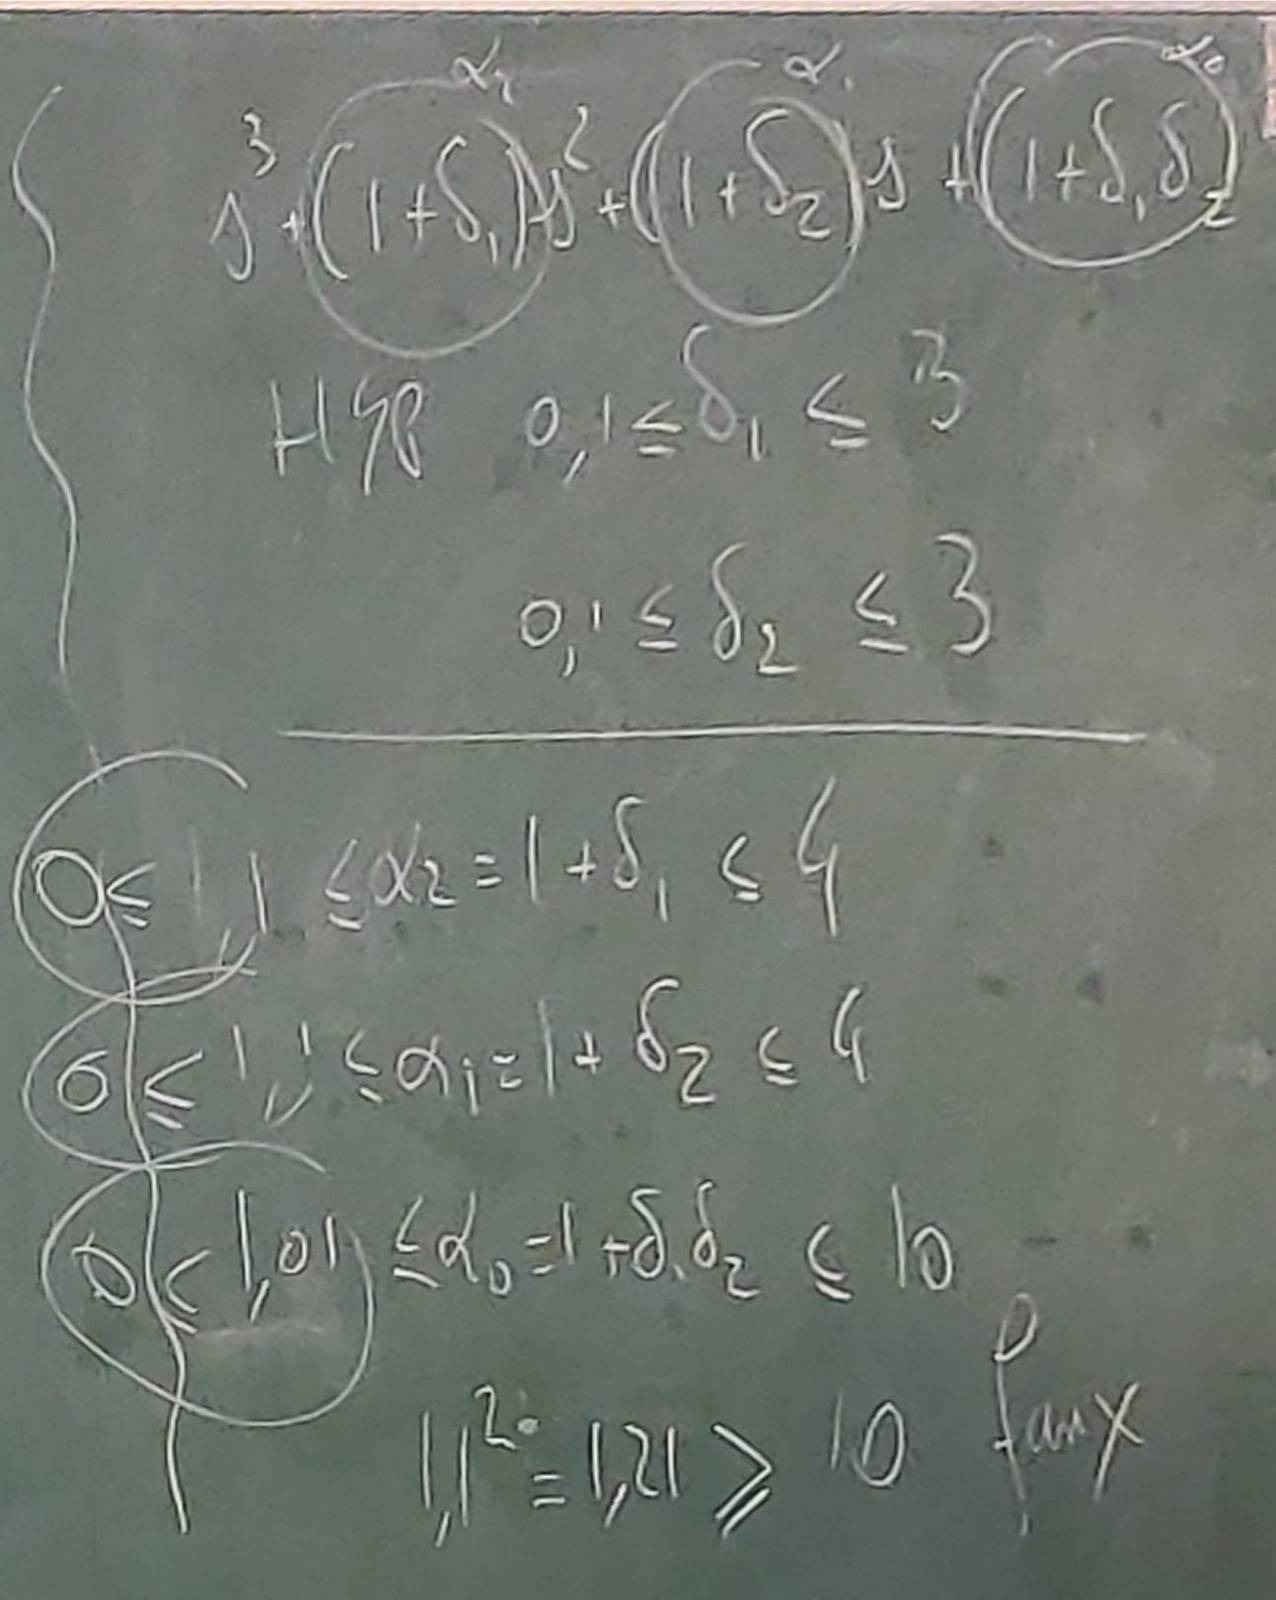 α₂ α₁ α₀
s³ + (1+δ₁)s² + (1+δ₂)s + (1+δ₁δ₂)
HYP 0,1 ≤ δ₁ ≤ 3
0,1 ≤ δ₂ ≤ 3
0 ≤ 1,1 ≤ α₂ = 1+δ₁ ≤ 4
0 ≤ 1,1 ≤ α₁ = 1+δ₂ ≤ 4
0 ≤ 1,01 ≤ α₀ = 1+δ₁δ₂ ≤ 10
1,1² = 1,21 ≥ 10 faux